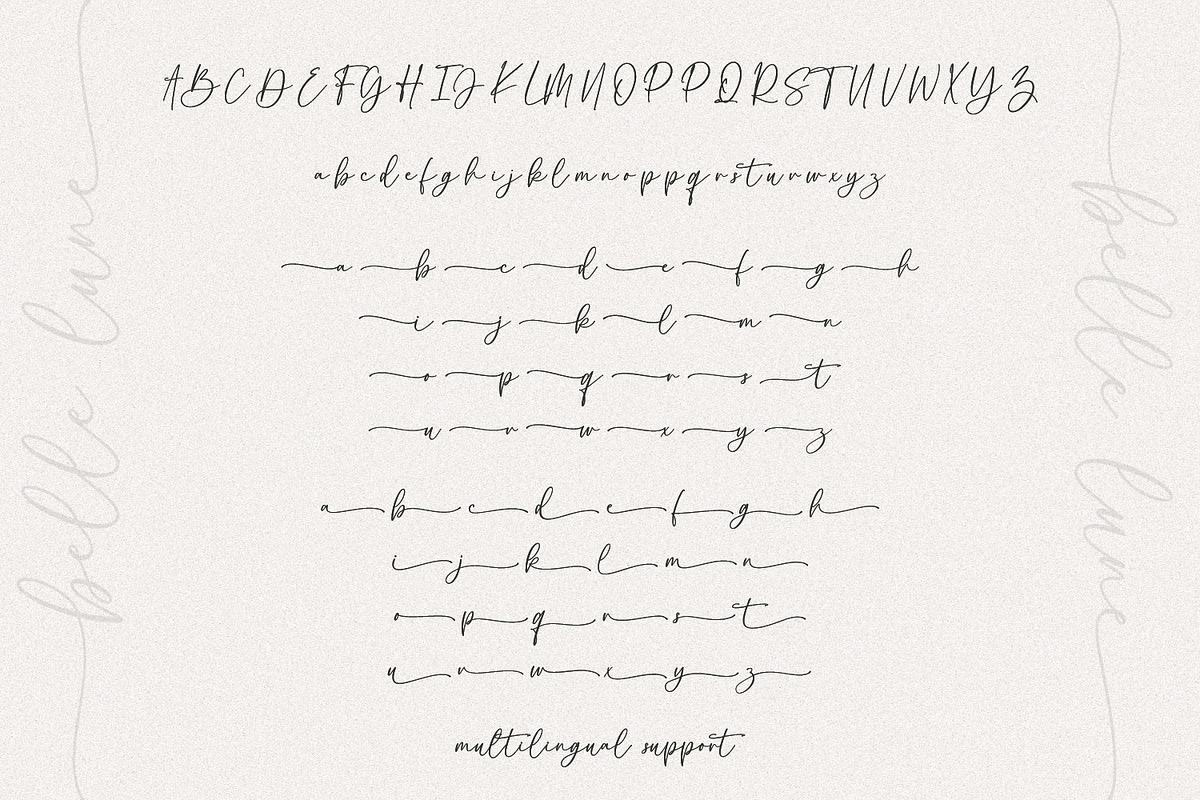 A B C D E F G H I J K L M N O P P Q R S T U V W X Y Z
a b c d e f g h i j k l m n o p p q r s t u v w x y z
a b c d e f g h
i j k l m n
o p q r s t
u v w x y z
a b c d e f g h
i j k l m n
o p q r s t
u v w x y z
multilingual support
belle lune
belle lune